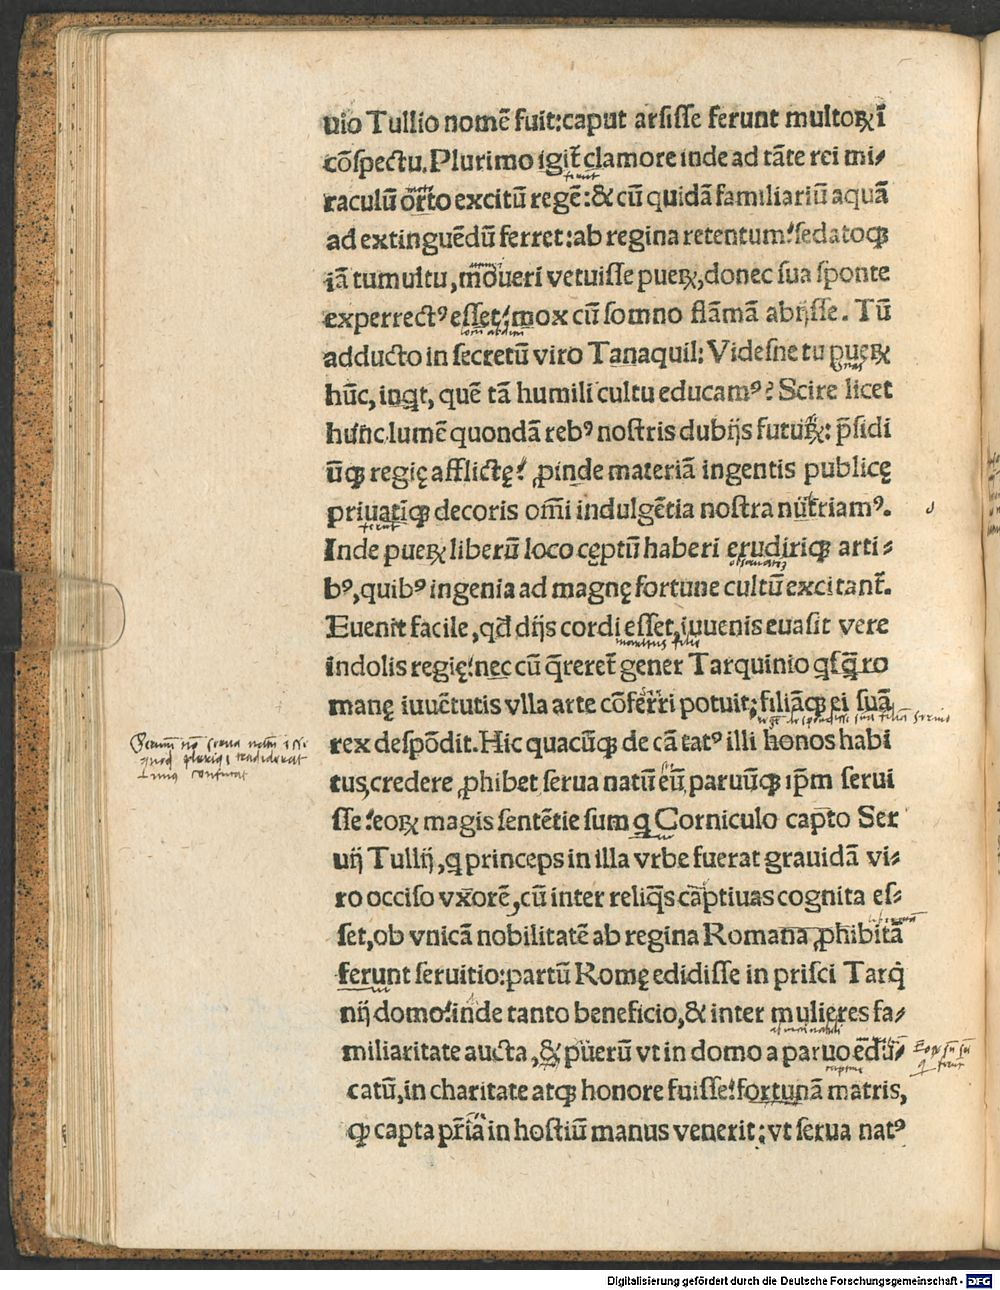 uio Tullio nomē fuit:caput arsisse ferunt multoꝝ ī
cōspectu.Plurimo igit᷑ clamore inde ad tāte rei mi⸗
raculū orto excitū regē:& cū quidā familiariū aquā
ad extinguēdū ferret:ab regina retentum:sedatoqꝫ
iā tumultu,moueri vetuisse pueꝝ,donec sua sponte
experrectꝰ esset:mox cū somno flāmā abijsse. Tū
adducto in secretū viro Tanaquil: Videsne tu pueꝝ
hūc, inqt, quē tā humili cultu educamꝰ? Scire licet
hunc lumē quondā rebꝰ nostris dubijs futuꝝ: p̄sidi
ūqꝫ regię afflictę: ꝓinde materiā ingentis publicę
priuatīqꝫ decoris om̄i indulgētia nostra nutriamꝰ.
Inde pueꝝ liberū loco cęptū haberi erudiriqꝫ arti⸗
bꝰ,quibꝰ ingenia ad magnę fortune cultū excitant᷑.
Euenit facile,qd̄ dijs cordi esset,iuuenis euasit vere
indolis regię:nec cū q̄reret᷑ gener Tarquinio qsq̄ ro
manę iuuētutis vlla arte cōferri potuit;filiāqꝫ ei suā
rex despōdit.Hic quacūqꝫ de cā tātꝰ illi honos habi
tus,credere ꝓhibet serua natū eū,paruūqꝫ ip̄m serui
sse:eoꝝ magis sentētie sum q Corniculo capto Ser
uij Tullij,q princeps in illa vrbe fuerat grauidā vi⸗
ro occiso vxorē,cū inter reliq̄s captiuas cognita es⸗
set,ob vnicā nobilitatē ab regina Romana ꝓhibitā
ferunt seruitio:partū Romę edidisse in prisci Tarq̇
nij domo:inde tanto beneficio,& inter mulieres fa⸗
miliaritate aucta,& puerū vt in domo a paruo edu⸗
catū,in charitate atqꝫ honore fuisse:fortunā matris,
qꝫ capta pr̄ia in hostiū manus venerit;vt serua natꝰ
ferunt
Digitalisierung gefördert durch die Deutsche Forschungsgemeinschaft - DFG